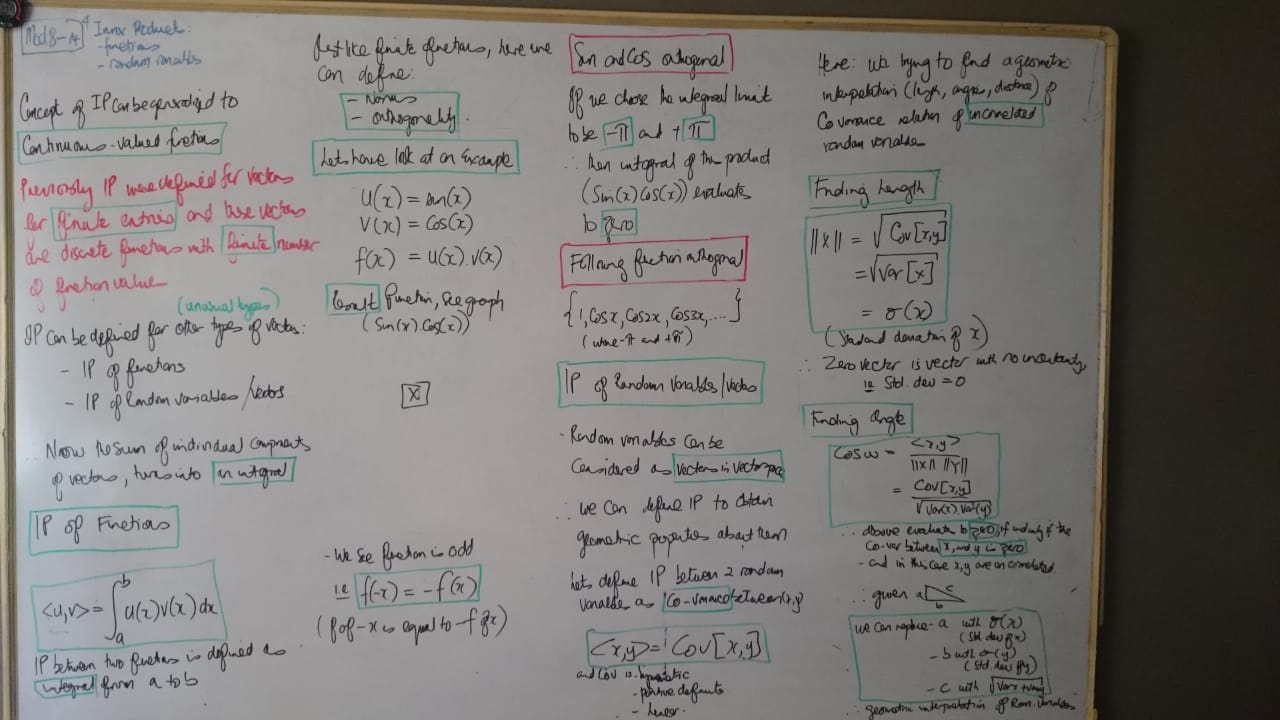 Mod 8-14
Inner Products:
- functions
- random variables
Concept of IP can be generalized to
Continuous-valued functions
Previously IP were defined for vectors
for finite entries and these vectors
are discrete functions with finite number
of function value
(unusual types)
IP can be defined for other types of vectors:
- IP of functions
- IP of Random variables / vectors
Now the sum of individual components
of vectors, turns into an integral
IP of Functions
<u,v> = ∫ₐᵇ u(x)v(x)dx
IP between two functions is defined as
integral from a to b
Just like finite functions, here we
can define:
- Norms
- orthogonality.
Lets have look at an Example
U(x) = sin(x)
V(x) = Cos(x)
f(x) = U(x).V(x)
Result function, see graph
(Sin(x).Cos(x))
- We see function is odd
ie f(-x) = -f(x)
(f of -x is equal to -f of x)
Sin and Cos orthogonal
If we choose the integral limit
to be -π and +π
∴ then integral of the product
(Sin(x)Cos(x)) evaluates
to zero
Following function orthogonal
{1, Cosx, Cos2x, Cos3x, ....}
(where -π and +π)
IP of Random Variables/Vectors
- Random variables can be
Considered as Vectors in vector space
∴ we can define IP to obtain
geometric properties about them
Lets define IP between 2 random
variable as Co-variance between (x,y)
<x,y> = Cov[x,y]
and Cov is - symmetric
- positive definite
- linear.
Here: we trying to find a geometric
interpretation (length, angle, distance) of
Covariance relation of uncorrelated
random variable
Finding Length
||x|| = √Cov[x,y]
= √Var[x]
= σ(x)
(Standard deviation of x)
∴ Zero vector is vector with no uncertainty
ie Std. dev = 0
Finding angle
Cos ω = <x,y> / ||x|| ||Y||
= Cov[x,y] / √Var(x).Var(y)
∴ above evaluate to zero, if and only if the
Co-var between x, and y is zero
- and in this case x,y are un correlated.
∴ given a c
b
we can replace - a with σ(x)
(Std. dev of x)
- b with σ(y)
(Std. dev of y)
- c with √Varx + Vary
∴ geometric interpretation of Ran. Variables